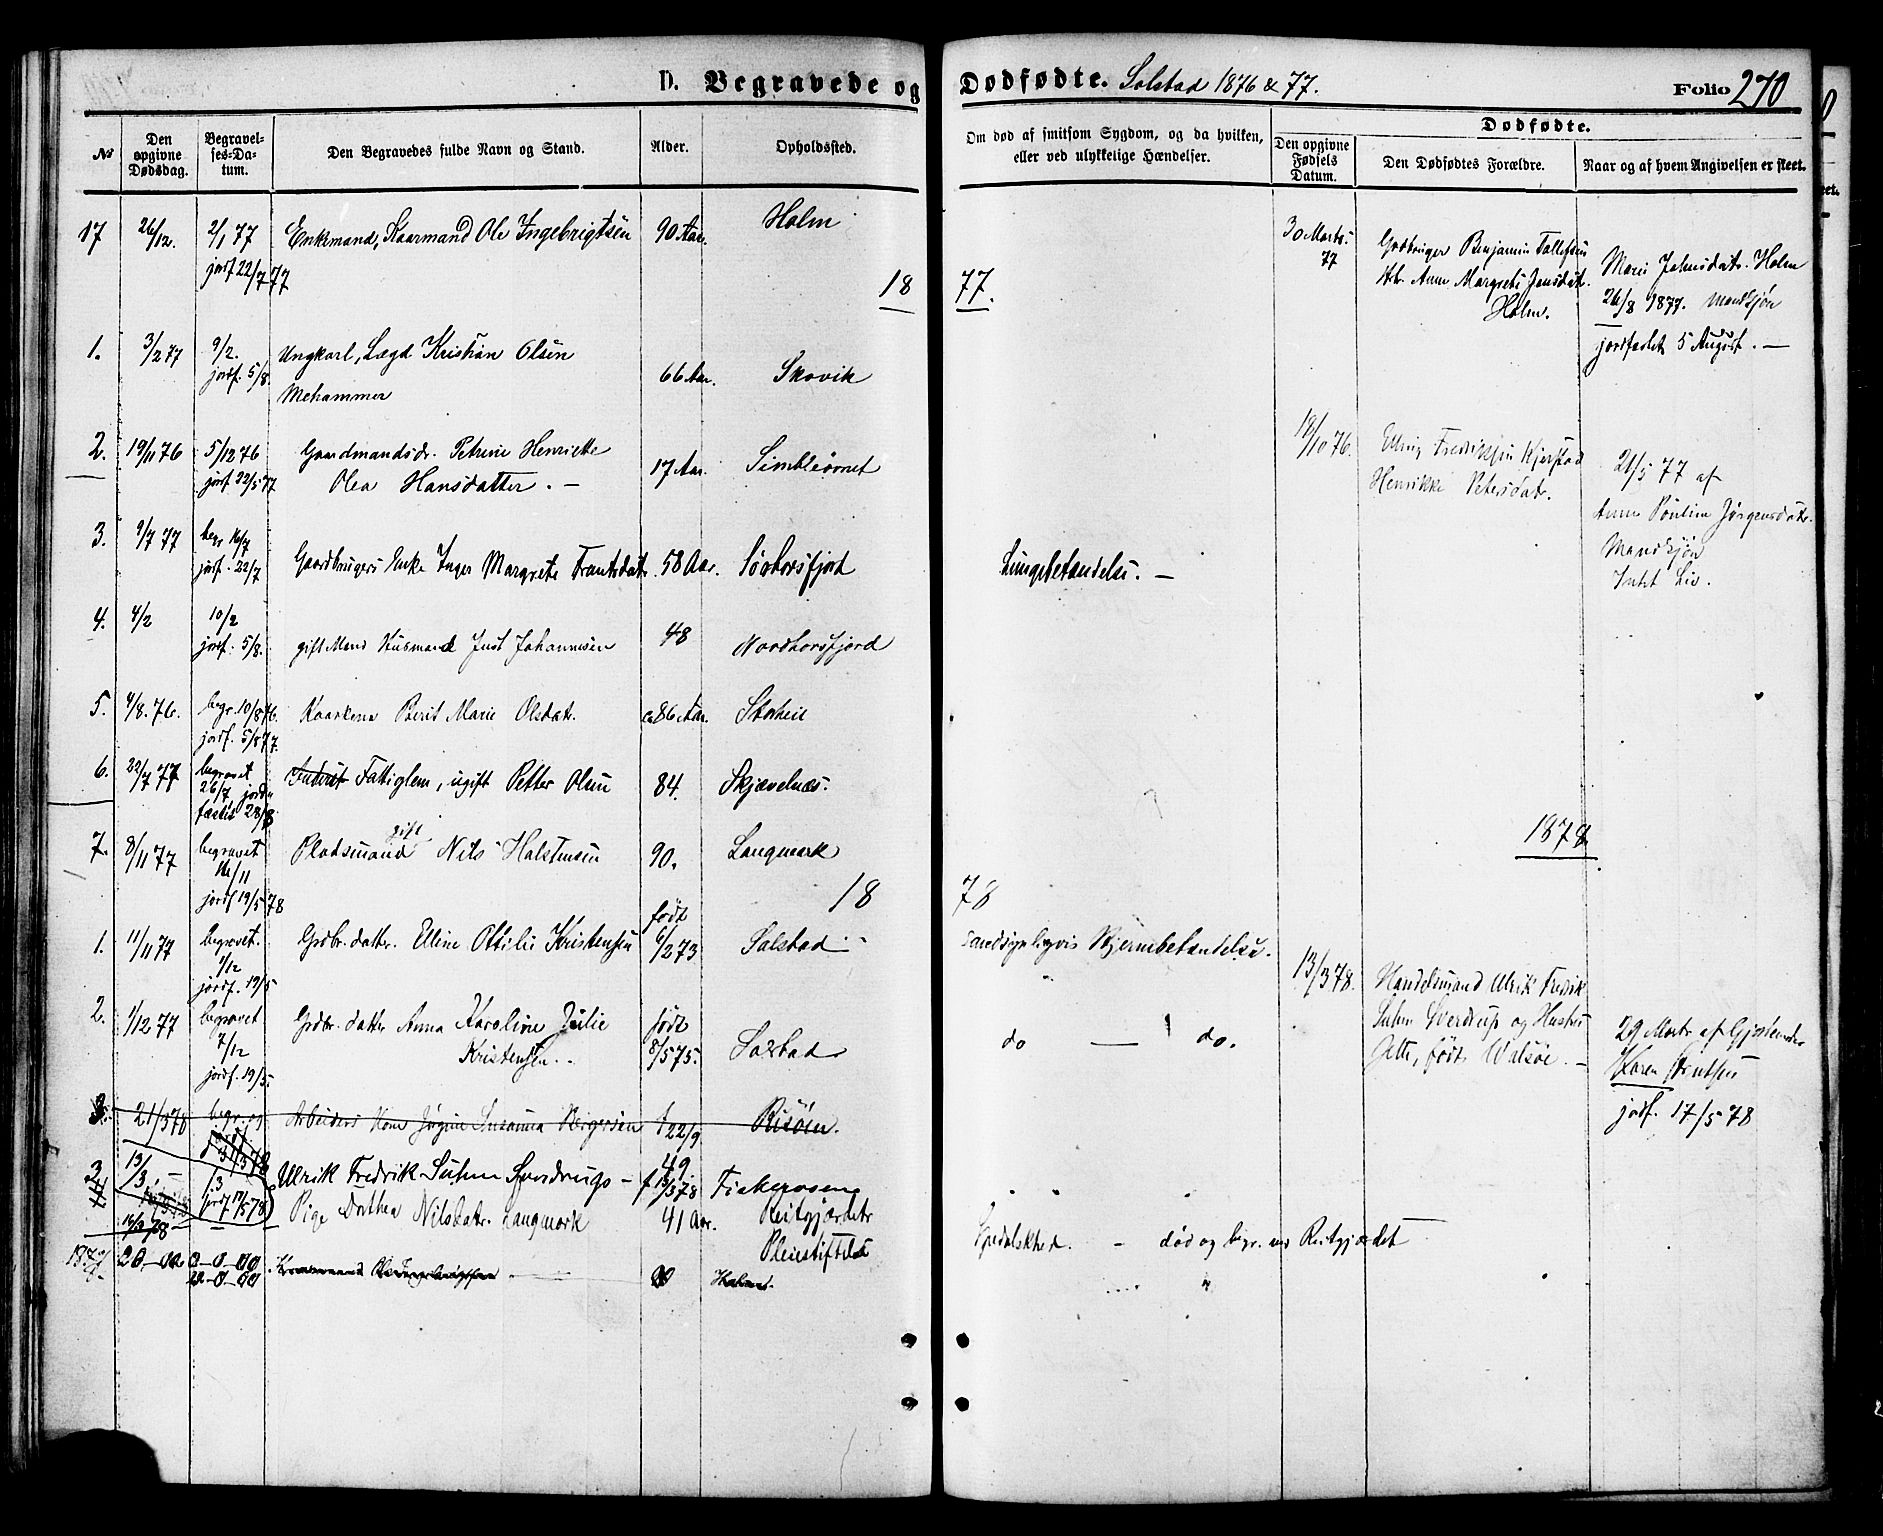 D. Begravede og Dødfødte. Solstad 1876 & 77. Folio 270
№
Den opgivne Dødsdag.
Begravelses-Datum.
Den Begravedes fulde Navn og Stand.
Alder.
Opholdssted.
Om død af smitsom Sygdom, og da hvilken, eller ved ulykkelige Hændelser.
Dødfødte.
Den opgivne Fødsels Datum.
Den Dødfødtes Forældre.
Naar og af hvem Angivelsen er skeet.
17 26/12. 2/1 77 Enkemand, Kaarmand Ole Ingebrigtsen 90 Aar. Holm
jordf 22/7 77
30 Marts 77
Gaardbruger Benjamin Tollefsen
Anne Margrete Jensdatr.
Holm.
Marie Johnsdatr. Holm
26/8 1877. Mandkjøn
jordfæstet 5 August. —
18 77.
1. 3/2 77 9/2. Ungkarl, Lægd Kristian Olsen
jordf. 5/8. Mehammer 66 Aar. Skovik
2. 19/11 76 5/12 76 Gaardmandsdr. Petrine Henriette
jordf 22/5 77 Olea Hansdatter. — 17 Aar. Simbleövret
18/10 76. Elling Fredriksen Kjerstad
Henrikke Petersdatr.
21/5 77 af
Anne Pouline Jørgensdatr.
Mandkjøn
Intet Liv.
3. 9/7 77 begr 16/7
jordf. 22/7 Gaardbrugers Enke Inger Margrete Frantsdatr. 58 Aar. Sörhorsfjord Lungebetændelse. —
4. 4/2 10/2
jordf. 5/8. gift Mand Husmand Just Johannesen 48 Nordhorsfjord
5. 4/8. 76. begr. 10/8 76.
jordf. 5/8 77. Kaarkone Berit Marie Olsdatr. 86 Aar. Storheil
6. 22/7 77 begravet
26/7 jord-
fæstet 28/8 Fattiglem, ugift Petter Olsen 84. Skjævelnæs.
1878
7. 8/11 77 begravet
/11
jordf 19/5 78 Pladsmand gift Nils Halstensen 90. Langmark
18 78
1. 11/11 77 begravet.
1/12
jordf. 19/5 Grdbr. datter. Elline Ottilie Kristensen født 6/2 73 Solstad Sandsynligvis Hjernebetændelse.
13/3 78. Handelsmand Ulrik Fredrik
Suhm Sverdrup og Hustru
Jette, født Walsöe. —
29 Marts af Gjordemoder
Karen Bentsen
jordf. 17/5 78
2. 1/12 77 begravet
7/12
jordf. 19/5. Grdbr. datter Anna Karoline Julie
Kristensen. født
8/5 75. Solstad do — do.
3. 21/3 78 begr. og Arbeiders Kone Jørgine Susanna Birgersen f 22/9 49. Risöen.
3 13/3 13 Ulrik Fredrik Suhm Sverdrups — f 13/3 78 Fiskerosen
4 jordf 17/5 78 Pige Dorthea Nilsdatr. Langmork 41 Aar. Reitgjærdets
Pleiestiftelse Spedalskhed. — død og begr. ved Reitgjærdet
16/3 78